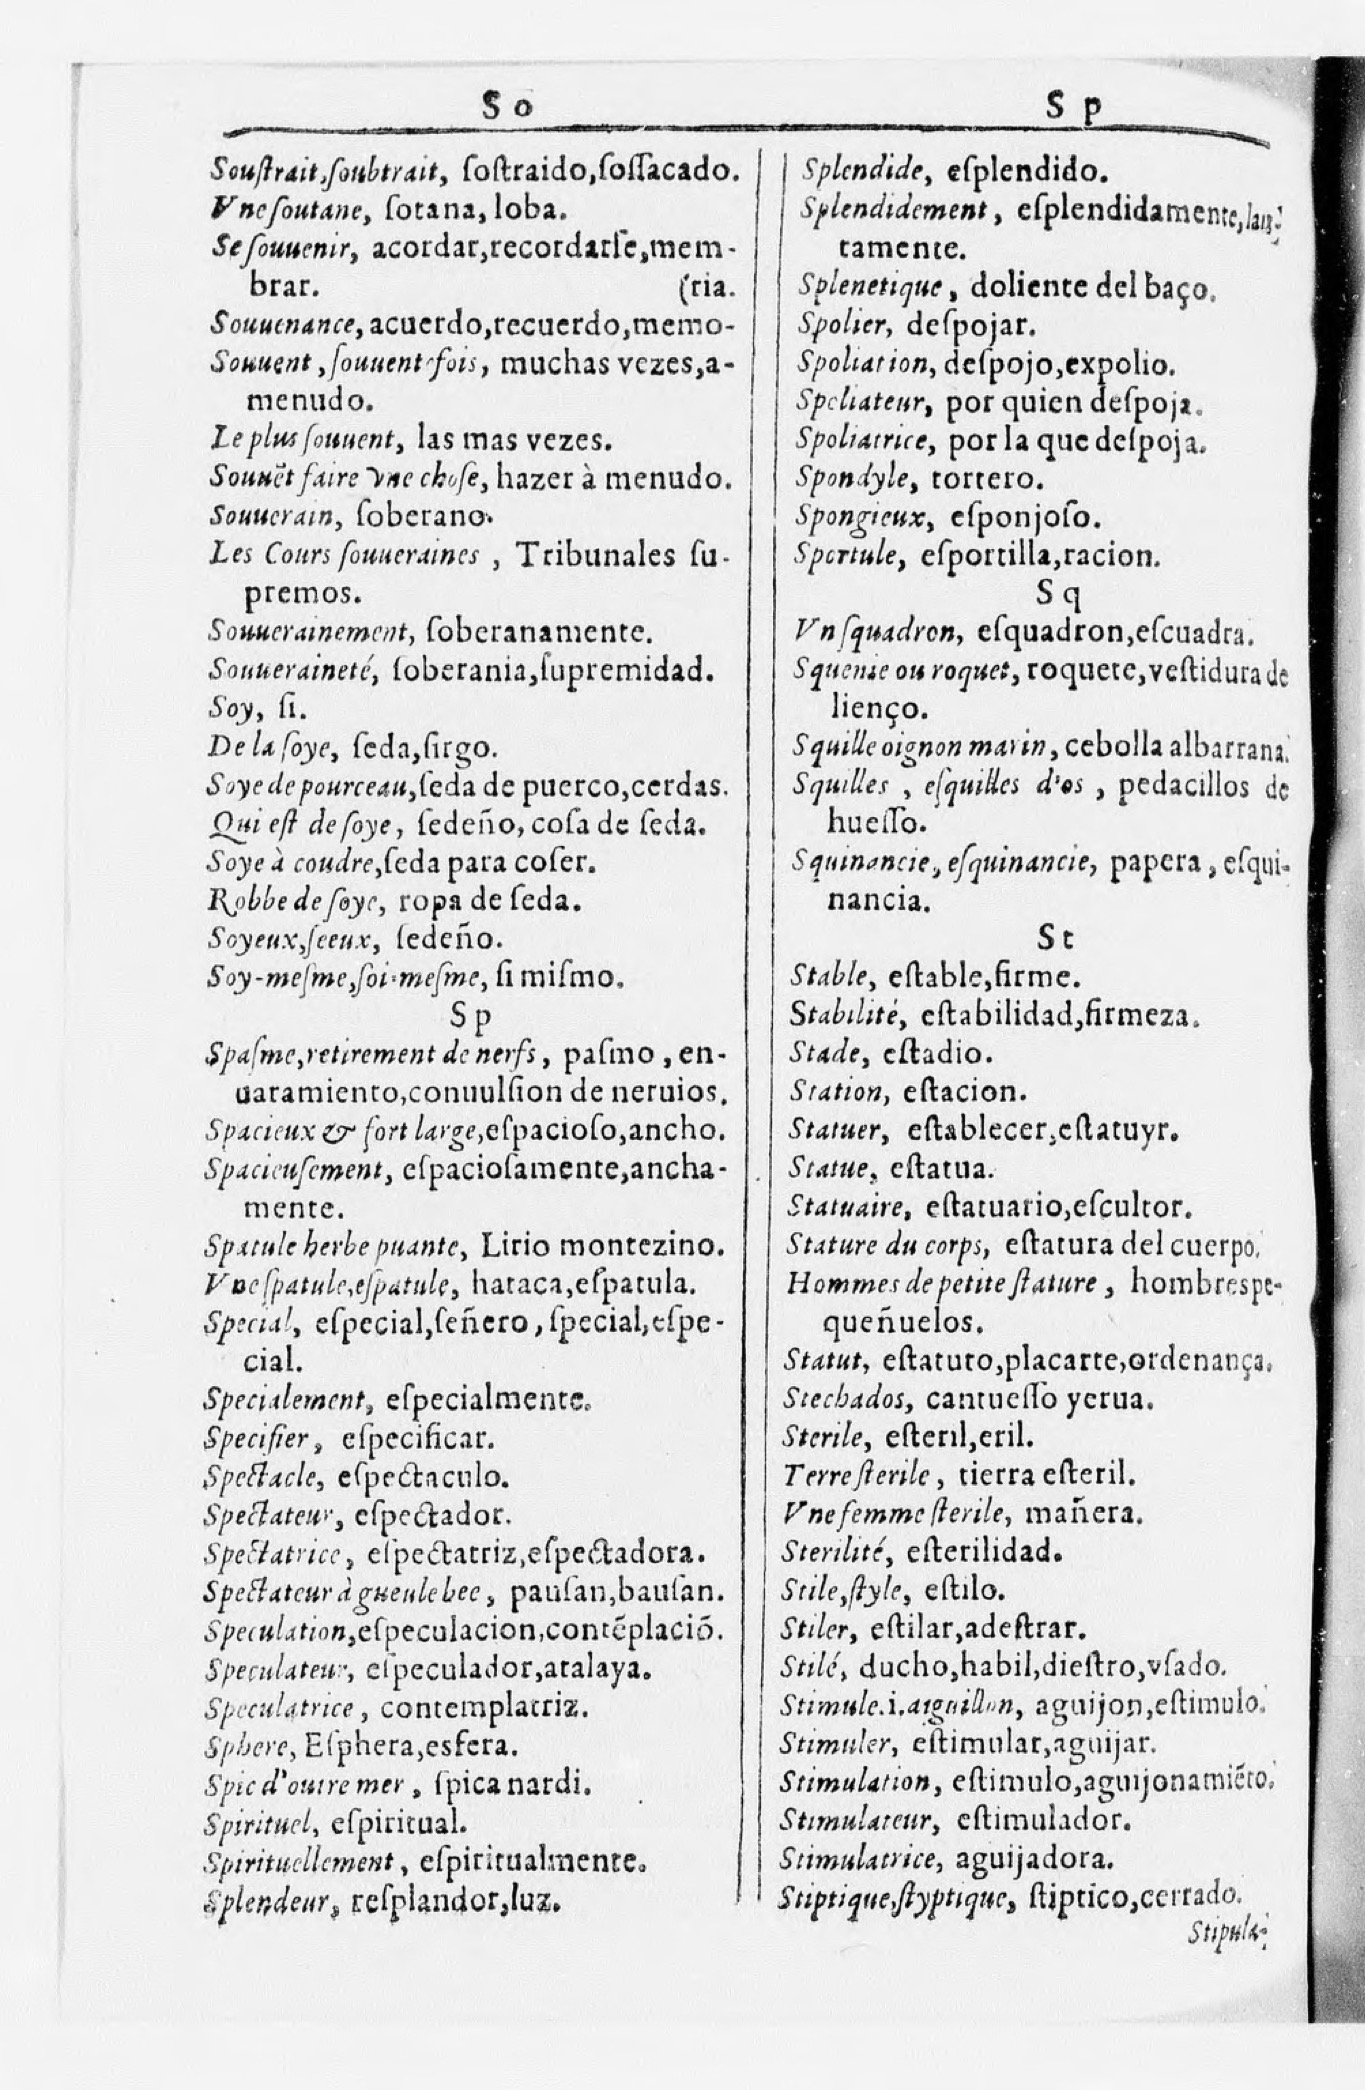 So
Souſtrait,ſoubtrait, ſoſtraido,ſoſſacado.
Vne ſoutane, ſotana, loba.
Se ſouuenir, acordar,recordarſe,mem-
brar. (ria.
Souuenance, acuerdo,recuerdo,memo-
Souuent, ſouuent-fois, muchas vezes,a-
menudo.
Le plus ſouuent, las mas vezes.
Souuēt faire vne choſe, hazer à menudo.
Souuerain, ſoberano.
Les Cours ſouueraines, Tribunales ſu-
premos.
Souuerainement, ſoberanamente.
Souueraineté, ſoberania,ſupremidad.
Soy, ſi.
De la ſoye, ſeda,ſirgo.
Soye de pourceau,ſeda de puerco,cerdas.
Qui eſt de ſoye, ſedeño, coſa de ſeda.
Soye à coudre,ſeda para coſer.
Robbe de ſoye, ropa de ſeda.
Soyeux,ſeeux, ſedeño.
Soy-meſme,ſoi-meſme, ſi miſmo.
Sp
Spaſme,retirement de nerfs, paſmo, en-
uaramiento,conuulſion de neruios.
Spacieux & fort large,eſpacioſo,ancho.
Spacieuſement, eſpacioſamente,ancha-
mente.
Spatule herbe puante, Lirio montezino.
Vne ſpatule,eſpatule, hataca,eſpatula.
Special, eſpecial,ſeñero, ſpecial,eſpe-
cial.
Specialement, eſpecialmente.
Specifier, eſpecificar.
Spectacle, eſpectaculo.
Spectateur, eſpectador.
Spectatrice, eſpectatriz,eſpectadora.
Spectateur à gueule bee, pauſan,bauſan.
Speculation,eſpeculacion,contēplaciō.
Speculateur, eſpeculador,atalaya.
Speculatrice, contemplatriz.
Sphere, Eſphera,esfera.
Spic d'outre mer, ſpica nardi.
Spirituel, eſpiritual.
Spirituellement, eſpiritualmente.
Splendeur, reſplandor,luz.
Sp
Splendide, eſplendido.
Splendidement, eſplendidamente,
tamente.
Splenetique, doliente del baço.
Spolier, deſpojar.
Spoliation, deſpojo,expolio.
Spoliateur, por quien deſpoja.
Spoliatrice, por la que deſpoja.
Spondyle, tortero.
Spongieux, eſponjoſo.
Sportule, eſportilla,racion.
Sq
Vn ſquadron, eſquadron,eſcuadra.
Squenie ou roquet, roquete,veſtidura de
lienço.
Squille oignon marin, cebolla albarrana.
Squilles, eſquilles d'os, pedacillos de
hueſſo.
Squinancie, eſquinancie, papera, eſqui-
nancia.
St
Stable, eſtable,firme.
Stabilité, eſtabilidad,firmeza.
Stade, eſtadio.
Station, eſtacion.
Statuer, eſtablecer,eſtatuyr.
Statue, eſtatua.
Statuaire, eſtatuario,eſcultor.
Stature du corps, eſtatura del cuerpo.
Hommes de petite ſtature, hombres pe-
queñuelos.
Statut, eſtatuto,placarte,ordenança.
Stechados, cantueſſo yerua.
Sterile, eſteril,eril.
Terre ſterile, tierra eſteril.
Vne femme ſterile, mañera.
Sterilité, eſterilidad.
Stile,ſtyle, eſtilo.
Stiler, eſtilar,adeſtrar.
Stilé, ducho,habil,dieſtro,vſado.
Stimule.i.aiguillon, aguijon,eſtimulo.
Stimuler, eſtimular,aguijar.
Stimulation, eſtimulo,aguijonamiēto.
Stimulateur, eſtimulador.
Stimulatrice, aguijadora.
Stiptique,ſtyptique, ſtiptico,cerrado.
Stipula-